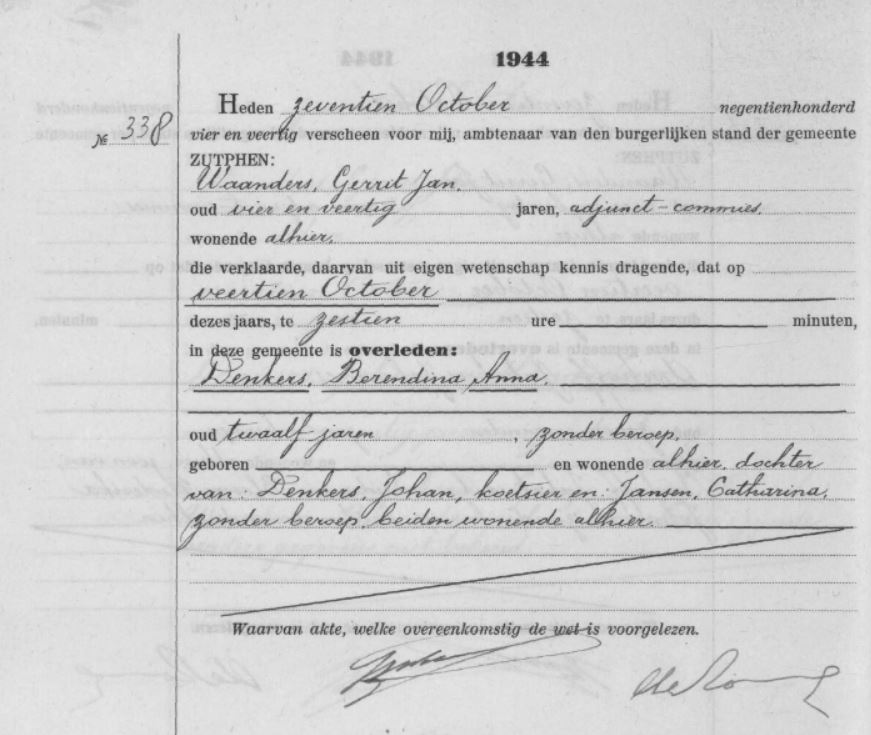 1944
Heden zeventien October negentienhonderd
№ 338 vier en veertig verscheen voor mij, ambtenaar van den burgerlijken stand der gemeente
ZUTPHEN:
Waanders, Gerrit Jan,
oud vier en veertig jaren, adjunct-commies,
wonende alhier,
die verklaarde, daarvan uit eigen wetenschap kennis dragende, dat op
veertien October
dezes jaars, te zestien ure minuten,
in deze gemeente is overleden:
Denkers, Berendina Anna,
oud twaalf jaren, zonder beroep,
geboren en wonende alhier, dochter
van: Denkers, Johan, koetsier en: Jansen, Catharina,
zonder beroep, beiden wonende alhier.
Waarvan akte, welke overeenkomstig de wet is voorgelezen.